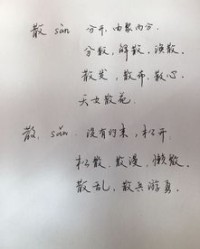 散 sàn 分开,由聚而分.
分散,解散,涣散.
散发,散布,散心.
天女散花.
散. sǎn 没有约束,松开.
松散.散漫.懒散.
散乱,散兵游勇.